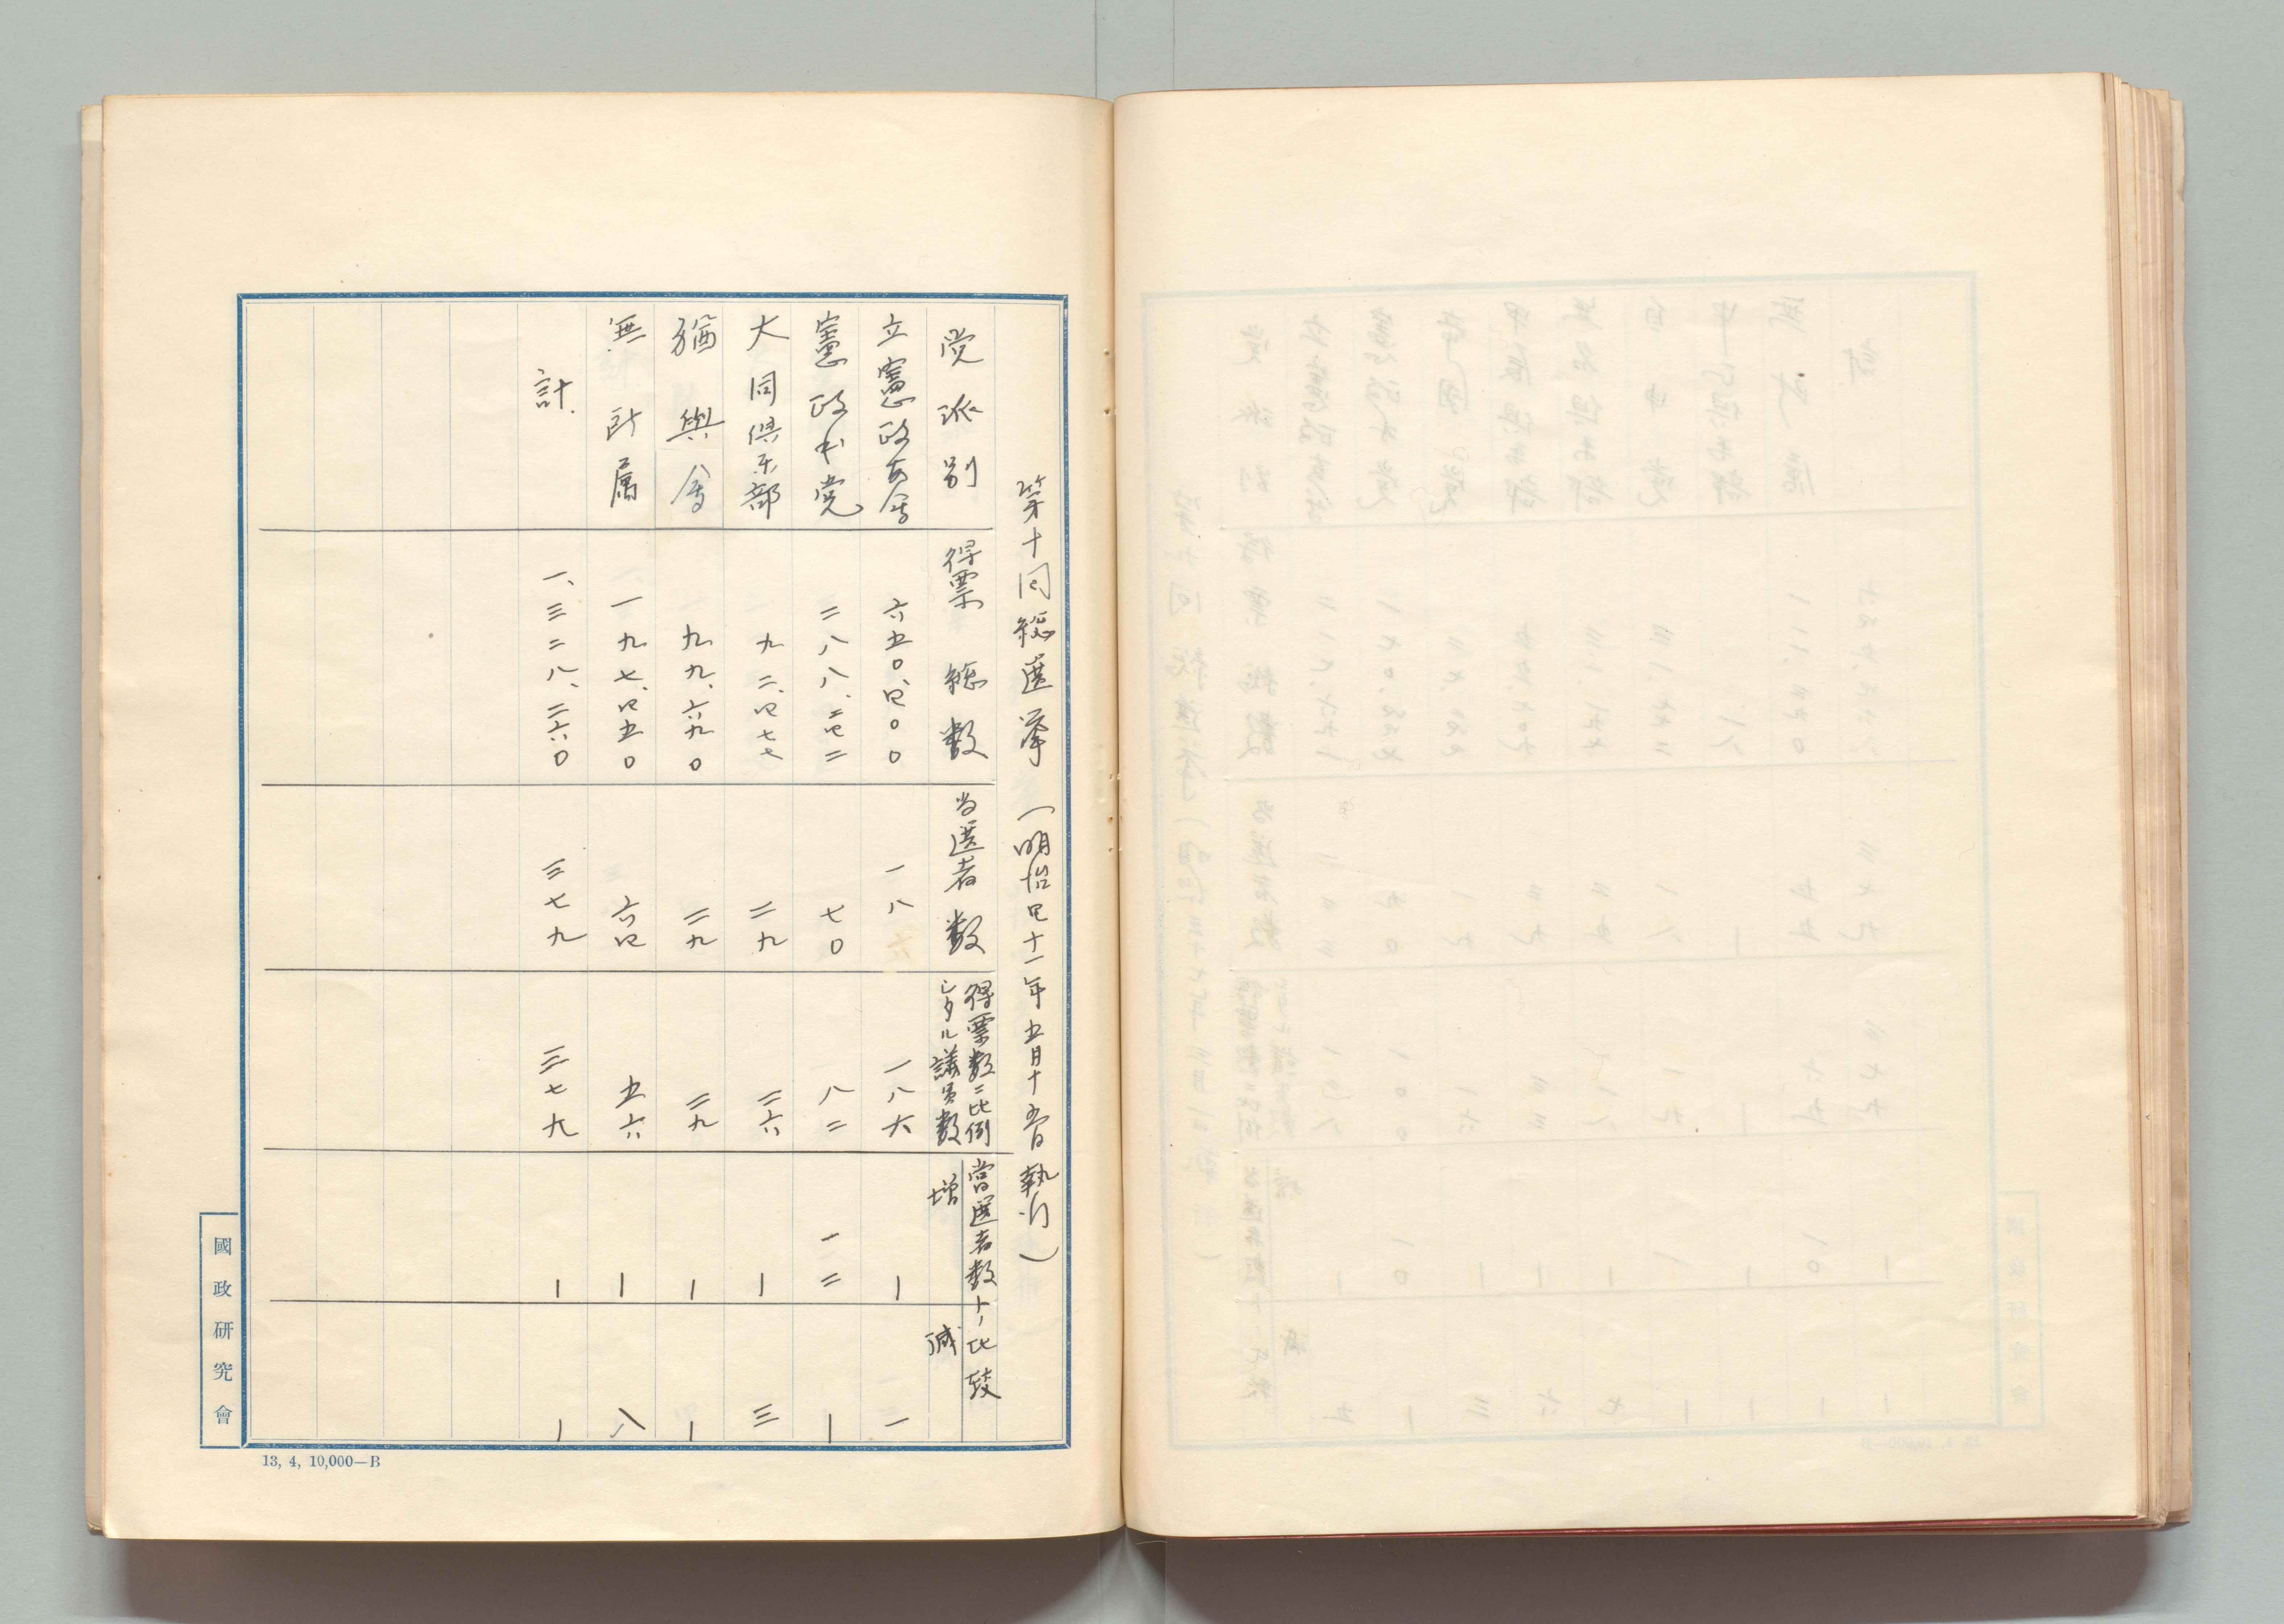 第十回総選挙（明治四十一年五月十五日執行）
党派別 得票総数 当選者数 得票数ニ比例シタル議員数 當選者数トノ比較 増 減
立憲政友会 六五〇、四〇〇 一八 一八六 ｜ 一
憲政本党 二八八、二四二 七〇 八二 一二 ｜
大同倶楽部 九二、四七七 二九 二六 ｜ 三
猶興会 九九、六九〇 二九 二九 ｜ ｜
無所属 一九七、四五〇 六四 五六 ｜ 八
計 一、三二八、二六〇 三七九 三七九 ｜ ｜
國政研究會
13, 4, 10,000—B